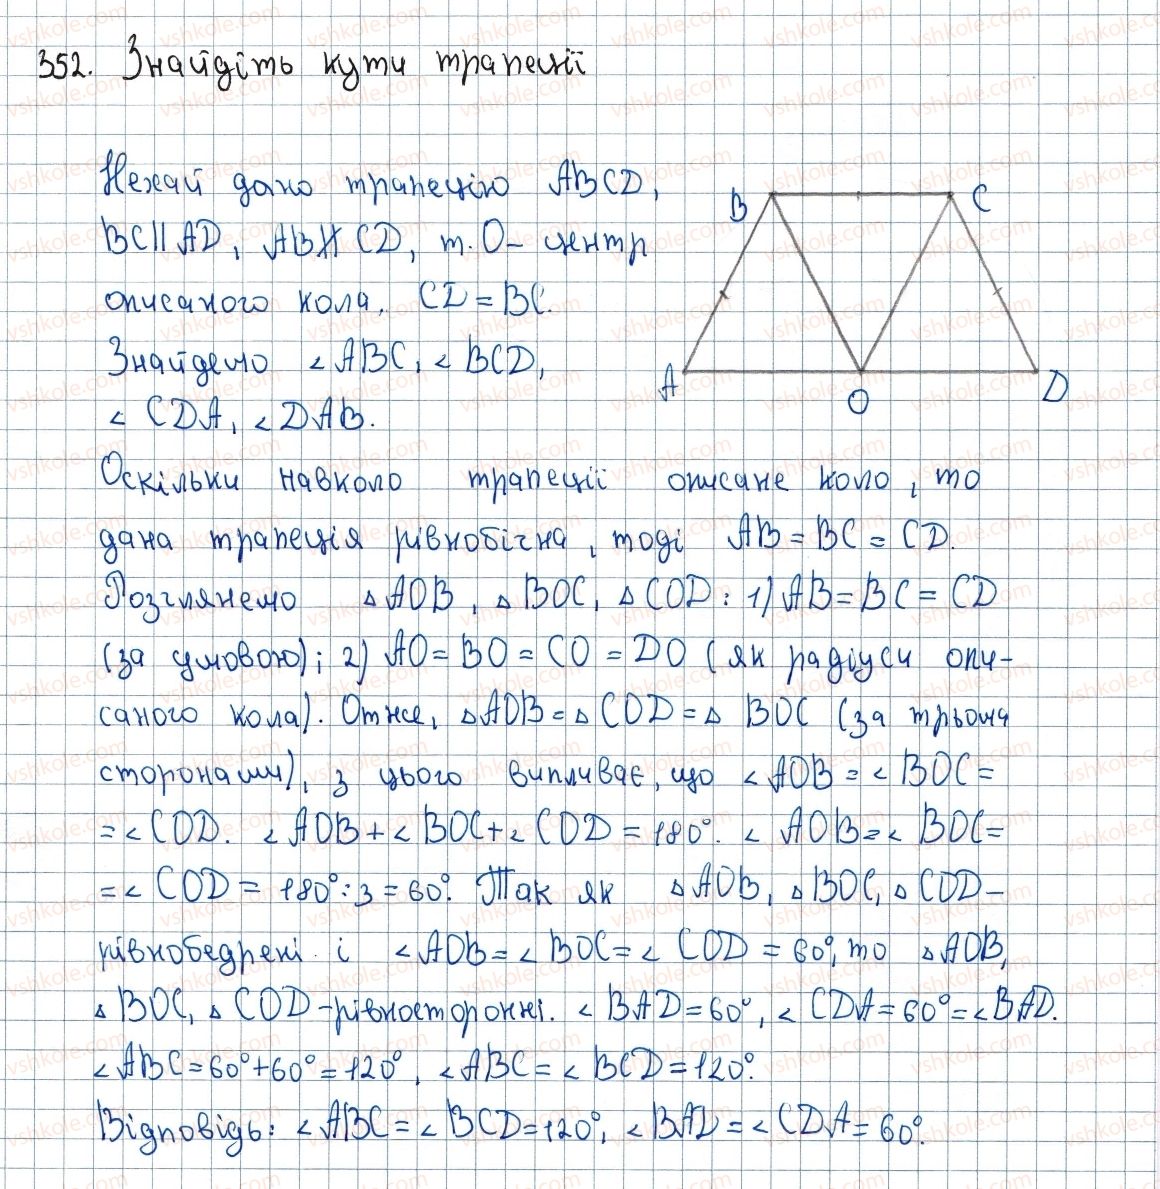 352. Знайдіть кути трапеції
Нехай дано трапецію ABCD,
BC || AD, AB ∦ CD, т. O – центр
описаного кола, CD = BC.
Знайдемо ∠ABC, ∠BCD,
∠CDA, ∠DAB.
B
C
A
O
D
Оскільки навколо трапеції описане коло, то
дана трапеція рівнобічна, тоді AB = BC = CD.
Розглянемо △AOB, △BOC, △COD: 1) AB = BC = CD
(за умовою); 2) AO = BO = CO = DO (як радіуси опи-
саного кола). Отже, △AOB = △COD = △BOC (за трьома
сторонами), з цього випливає, що ∠AOB = ∠BOC =
= ∠COD. ∠AOB + ∠BOC + ∠COD = 180°. ∠AOB = ∠BOC =
= ∠COD = 180° : 3 = 60°. Так як △AOB, △BOC, △COD –
рівнобедрені і ∠AOB = ∠BOC = ∠COD = 60°, то △AOB,
△BOC, △COD – рівносторонні. ∠BAD = 60°, ∠CDA = 60° = ∠BAD.
∠ABC = 60° + 60° = 120°, ∠ABC = ∠BCD = 120°.
Відповідь: ∠ABC = ∠BCD = 120°, ∠BAD = ∠CDA = 60°.
vshkole.com